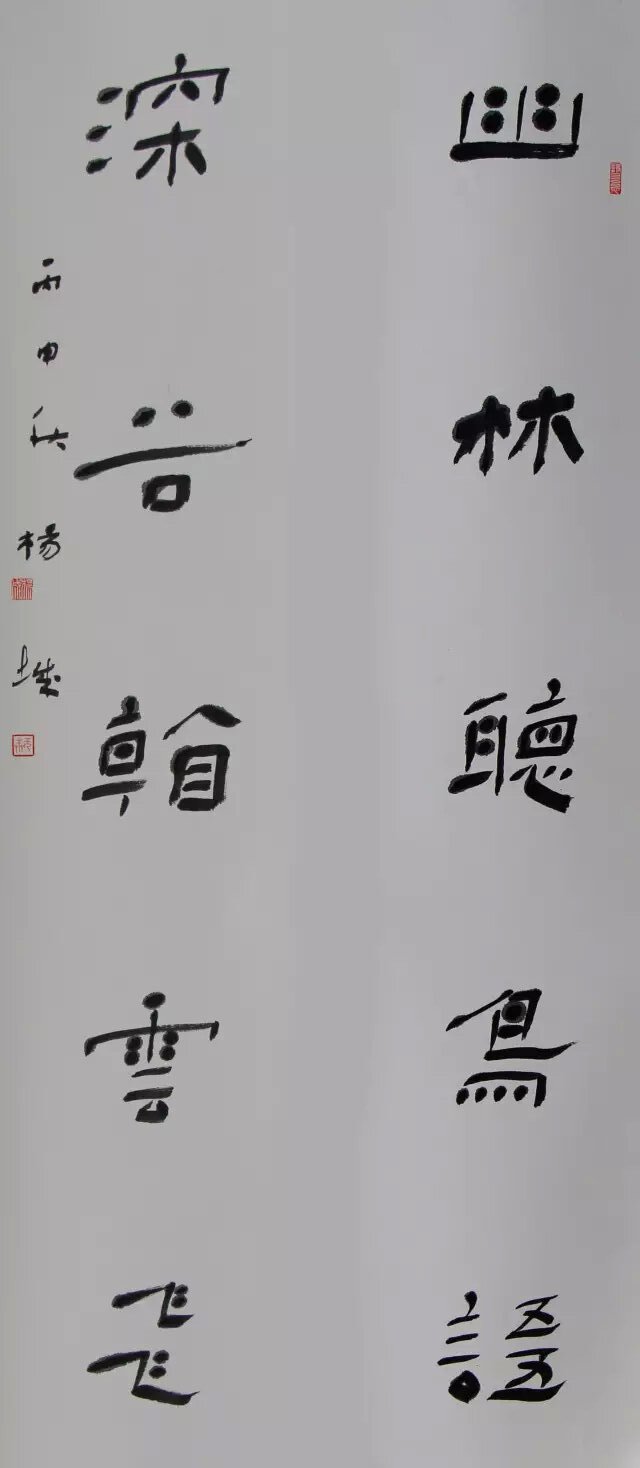 幽林聽鳥語
深谷看雲飛
丙申秋楊城